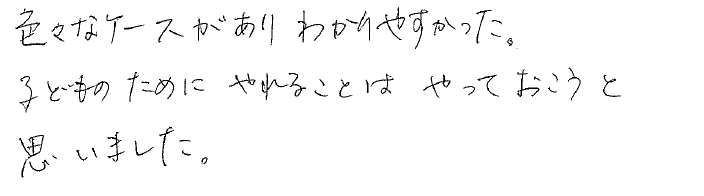 色々なケースがありわかりやすかった。
子どものためにやれることはやっておこうと
思いました。